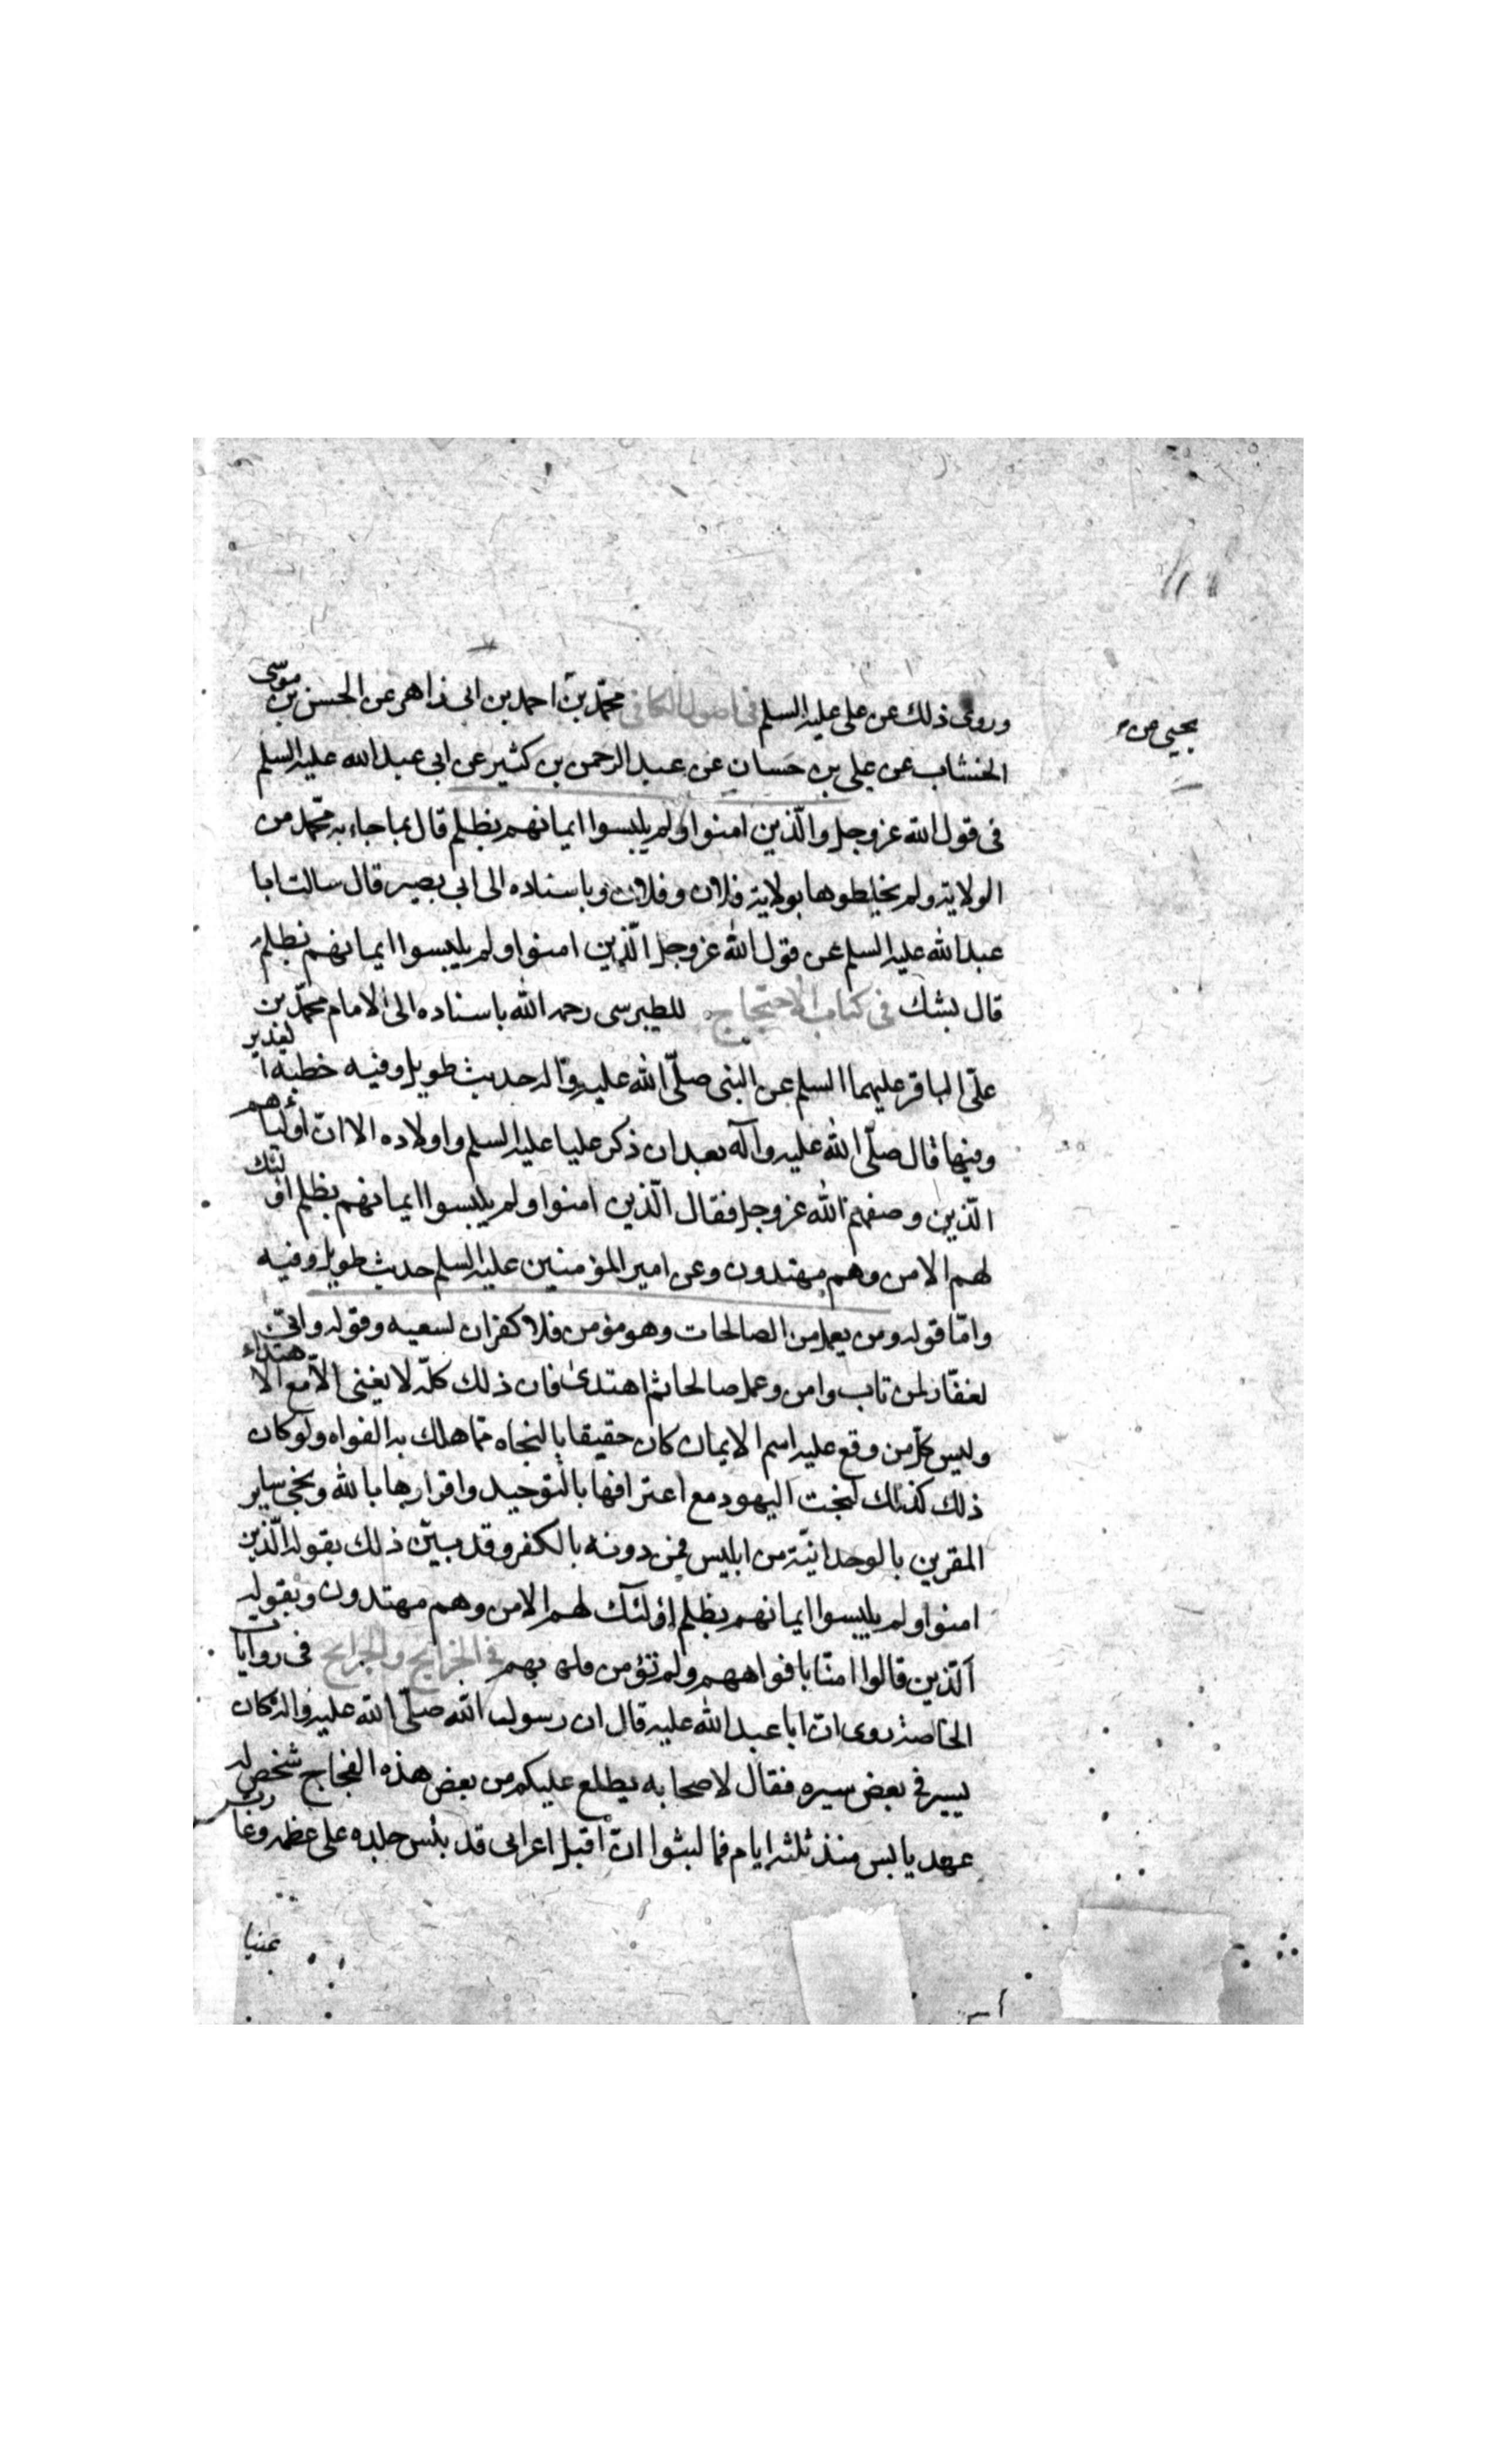 وروى ذلك عن على عليه السلم فى اصول الكافى محمّد بن احمد بن ابى زاهر عن الحسن بن موسى
يحيى عن م
الخشاب عن على بن حسان عن عبد الرحمن بن كثير عن ابى عبد الله عليه السلم
فى قول الله عز وجل والّذين امنوا ولم يلبسوا ايمانهم بظلم قال بما جاء به محمّد من
الولاية ولم يخلطوها بولاية فلان وفلان وباسناده الى ابى بصير قال سالت ابا
عبد الله عليه السلم عن قول الله عز وجل الّذين امنوا ولم يلبسوا ايمانهم بظلم
قال بشك فى كتاب الاحتجاج للطبرسى رحمه الله باسناده الى الامام محمّد بن
علىّ الباقر عليهما السلم عن النبى صلّى الله عليه وآله حديث طويل وفيه خطبة الغدير
وفيها قال صلّى الله عليه وآله بعد ان ذكر عليا عليه السلم واولاده الا انّ اولياءهم
الّذين وصفهم الله عز وجل فقال الّذين امنوا ولم يلبسوا ايمانهم بظلم اولئك
لهم الامن وهم مهتدون وعن امير المؤمنين عليه السلم حديث طويل وفيه
وامّا قوله ومن يعمل من الصالحات وهو مؤمن فلا كفران لسعيه وقوله وانى
لغفّار لمن تاب وامن وعمل صالحا ثم اهتدى فان ذلك كلّه لا يغنى الّا مع الاهتداء
وليس كلّ من وقع عليه اسم الايمان كان حقيقا بالنجاه ممّا هلك به الغواه ولو كان
ذلك كذلك لنجت اليهود مع اعترافها بالتوحيد واقرارها بالله ونجى ساير
المقرين بالوحدانيّة من ابليس فمن دونه بالكفر وقد بيّن ذلك بقوله الّذين
امنوا ولم يلبسوا ايمانهم بظلم اولئك لهم الامن وهم مهتدون وبقوله
الّذين قالوا امنّا بافواههم ولم تؤمن قلوبهم فى الخرايج والجرايح فى روايات
الخاصة روى ان ابا عبد الله عليه قال ان رسول الله صلّى الله عليه وآله كان
يسير فى بعض سيره فقال لاصحابه يطلع عليكم من بعض هذه الفجاج شخص له
عهد يابس منذ ثلثه ايام فما لبثوا ان اقبل اعرابى قد يئس جلده على عظمه وغارت
عينا